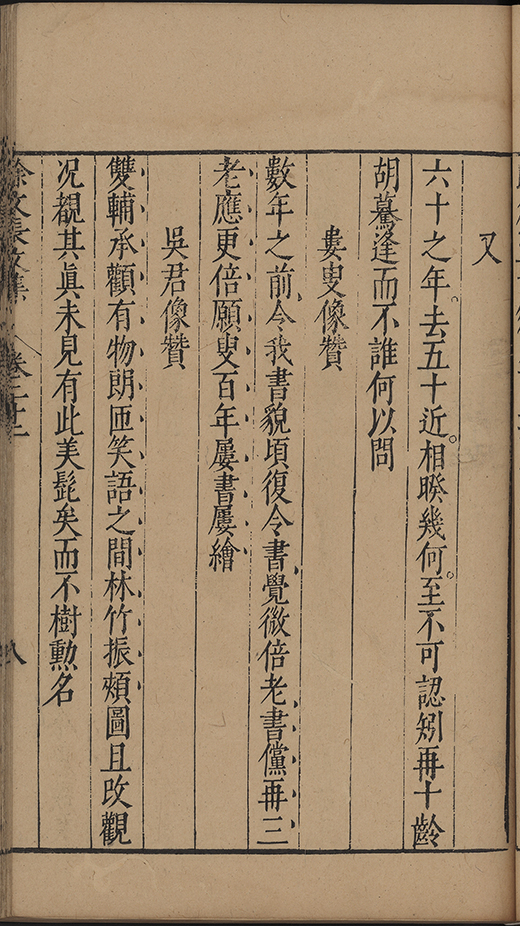 又
六十之年。去五十近。相暌幾何。至不可認矧再十齡
胡驀逢而不誰何以問
婁叟像贊
數年之前、令我書貌頃復令書、覺微倍老、書儻再三
老應更倍願叟百年屢書屢繪
吳君像贊
雙輔承顴有物朗匝笑語之間林竹振頰圖且改觀
况覩其眞未見有此美髭矣而不樹勳名
徐文長文集 卷二十二 八